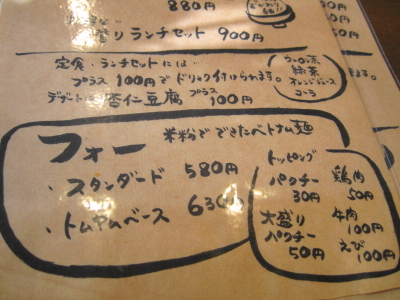 880円
おかわり
自由!!
盛りランチセット 900円
定食・ランチセットには
プラス 100円で ドリンク付けられます。
デザートに 杏仁豆腐 プラス 100円
ウーロン茶
緑茶
オレンジジュース
コーラ
ます。
円
フォー 米粉で できたベトナム麺
・スタンダード 580円
・トムヤムベース 630円
トッピング
パクチー 30円
鶏肉 50円
大盛りパクチー 50円
牛肉 100円
えび 100円